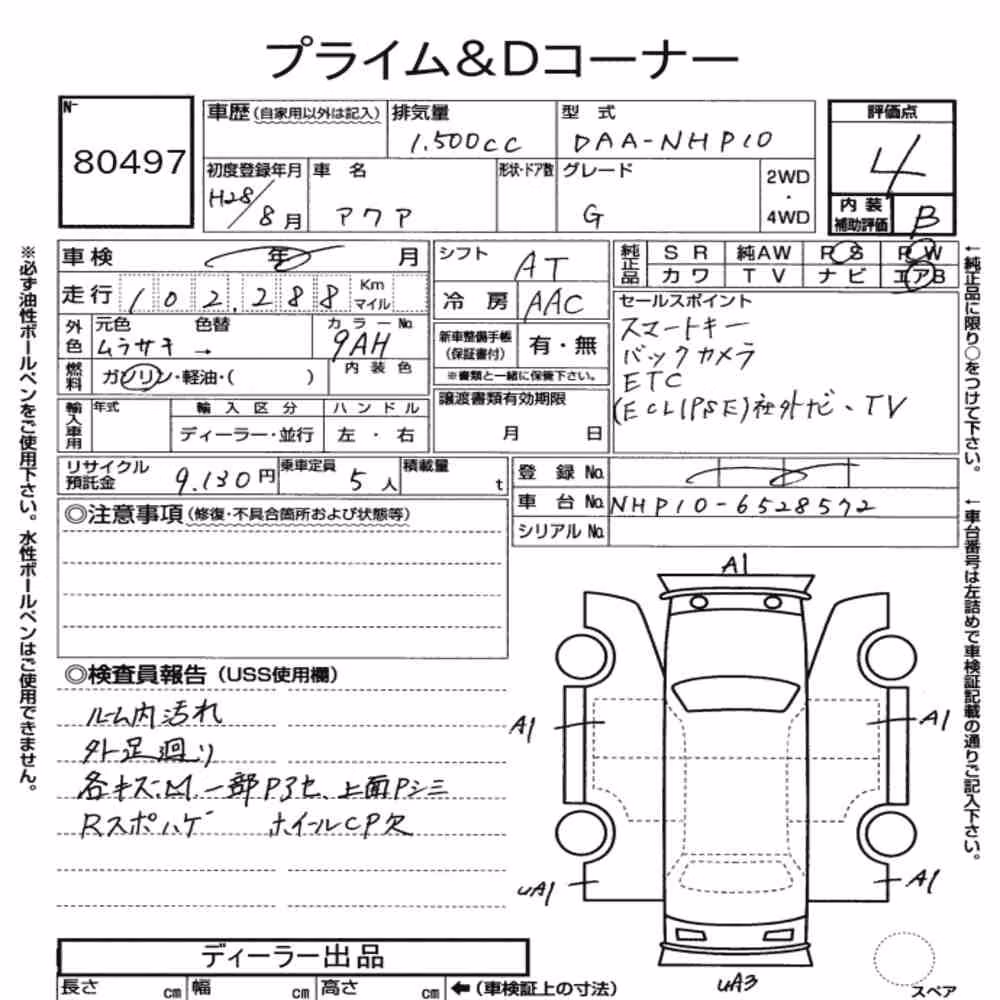 プライム&Dコーナー
N-
80497
車歴(自家用以外は記入) 排気量 型 式
1.500cc DAA-NHP10
初度登録年月 車 名 形状・ドア数 グレード
H28/8月 アクア G 2WD・4WD
評価点
4
内装補助評価 B
車検 年 月
走行 102,288 Km マイル
外色 元色 色替 カラーNo.
ムラサキ → 9AH
燃料 ガソリン・軽油・( ) 内装色
輸入車用 年式 輸入区分 ハンドル
ディーラー・並行 左・右
シフト AT
冷房 AAC
新車整備手帳(保証書付) 有・無
※書類と一緒に保管下さい。
譲渡書類有効期限
月 日
純正品 SR 純AW PS PW
カワ TV ナビ エアB
セールスポイント
スマートキー
バックカメラ
ETC
(ECLIPSE)社外ナビ、TV
リサイクル預託金 9.130円 乗車定員 5人 積載量 t
登録No.
車台No. NHP10-6528572
シリアルNo.
◎注意事項(修復・不具合箇所および状態等)
◎検査員報告(USS使用欄)
ルーム内汚れ
外足廻り
各キズ.M.一部Pアセ、上面Pシミ
Rスポハゲ ホイールCP欠
A1
A1
A1
UA1
A1
UA3
スペア
ディーラー出品
長さ cm 幅 cm 高さ cm ←(車検証上の寸法)
※必ず油性ボールペンをご使用下さい。水性ボールペンはご使用できません。
←純正品に限り○をつけて下さい。
←車台番号は左詰めで車検証記載の通りご記入下さい。